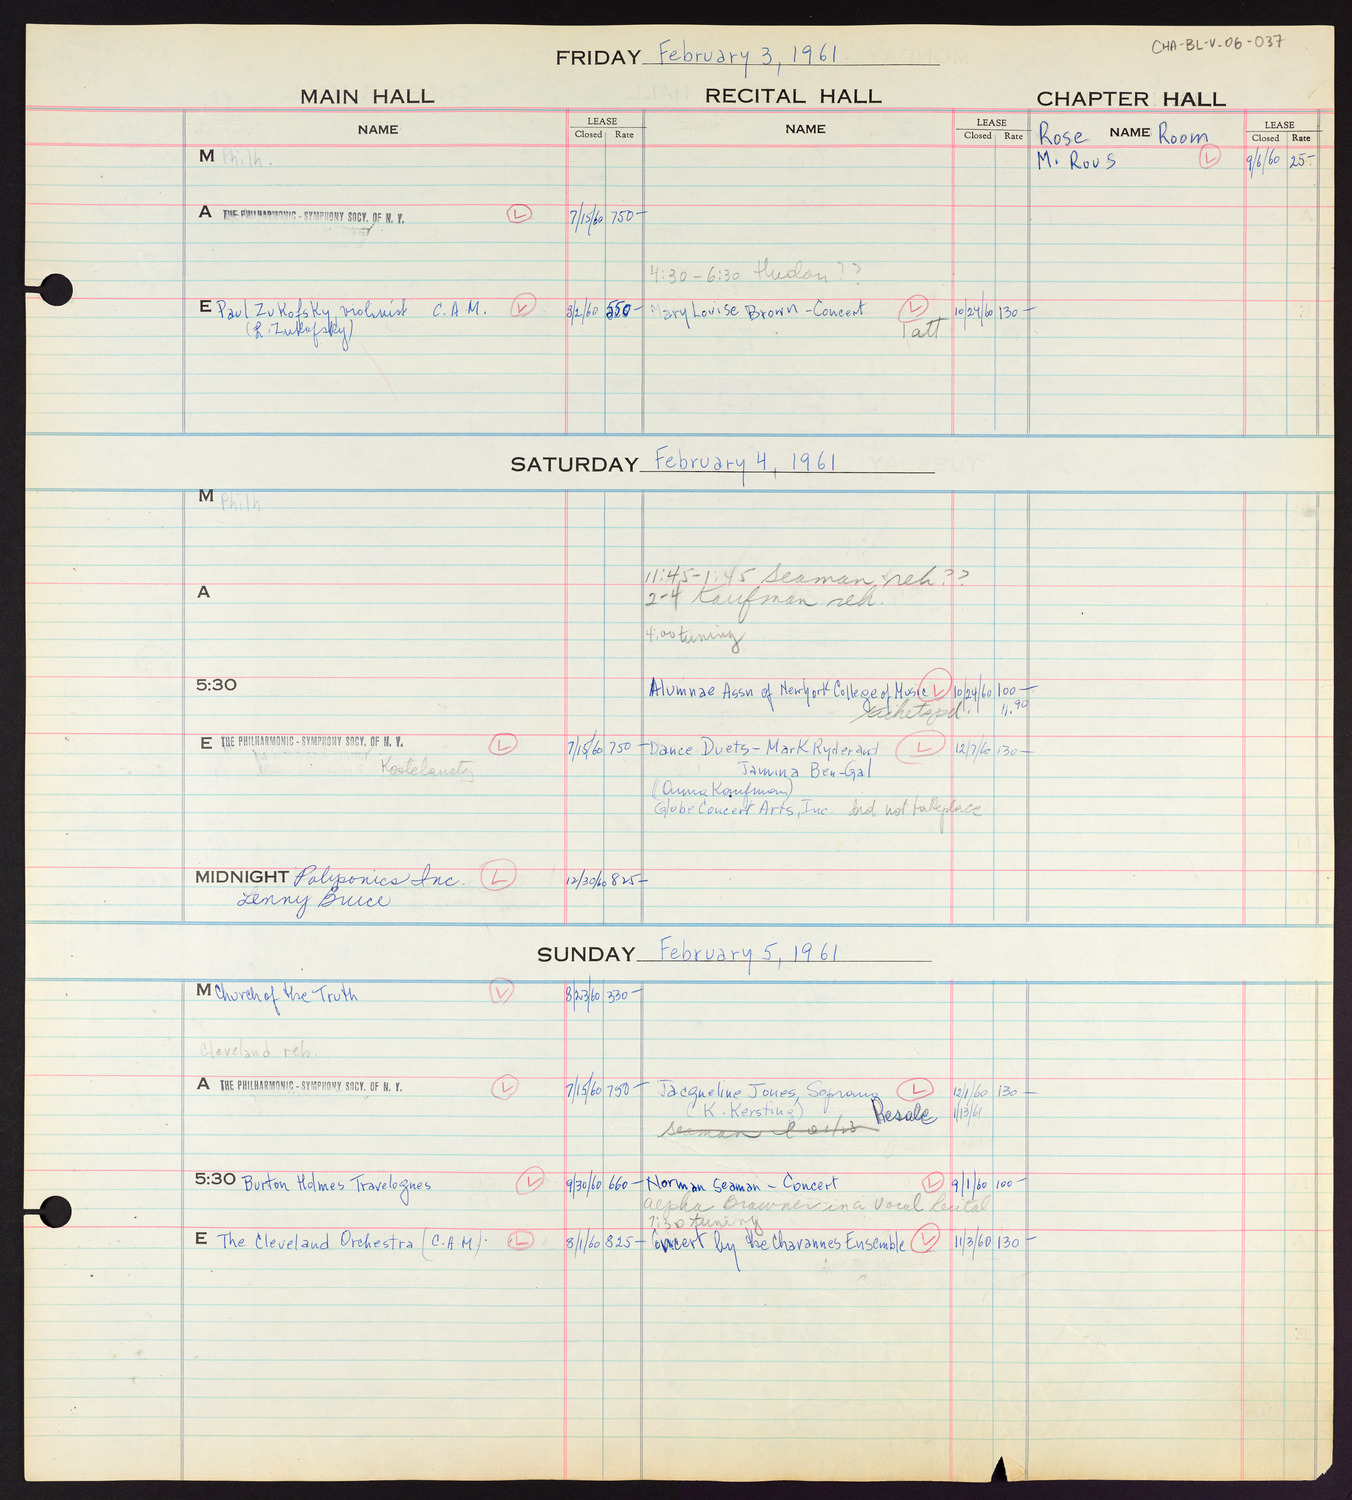 CHA-BL-V.06-037
FRIDAY February 3, 1961
MAIN HALL RECITAL HALL CHAPTER HALL
NAME LEASE Closed Rate NAME LEASE Closed Rate Rose NAME Room LEASE Closed Rate
M Philh. M. Rous L 9/6/60 25-
A THE PHILHARMONIC-SYMPHONY SOCY. OF N. Y. L 7/15/60 750-
4:30-6:30 Hudon??
E Paul Zukofsky, violinist C.A.M. L 550- Mary Louise Brown - Concert L 10/24/60 130-
(P. Zukofsky) Tatt
SATURDAY February 4, 1961
M Philh
11:45-1:45 Seaman reh.??
A 2-4 Kaufman reh.
4:00 tuning
5:30 Alumnae Assn of New York College of Music L 10/24/60 100-
11.90
E THE PHILHARMONIC-SYMPHONY SOCY. OF N. Y. L 7/15/60 750- Dance Duets - Mark Ryder and L 12/7/60 130-
Kostelanetz Jamina Ben-Gal
(Anna Kaufman)
Globe Concert Arts, Inc. did not take place
MIDNIGHT Polyponics Inc. L 12/30/60 825-
Lenny Bruce
SUNDAY February 5, 1961
M Church of the Truth L 8/23/60 330-
Cleveland reh.
A THE PHILHARMONIC-SYMPHONY SOCY. OF N. Y. L 7/15/60 750- Jacqueline Jones, Soprano L 12/1/60 130-
(K. Kersting) Resale 1/13/61
Seaman
5:30 Burton Holmes Travelogues L 9/30/60 660- Norman Seaman - Concert L 9/1/60 100-
Alpha Brawner in a Vocal Recital
7:30 tuning
E The Cleveland Orchestra (C.A.M.) L 8/1/60 825- Concert by the Chavannes Ensemble L 11/3/60 130-